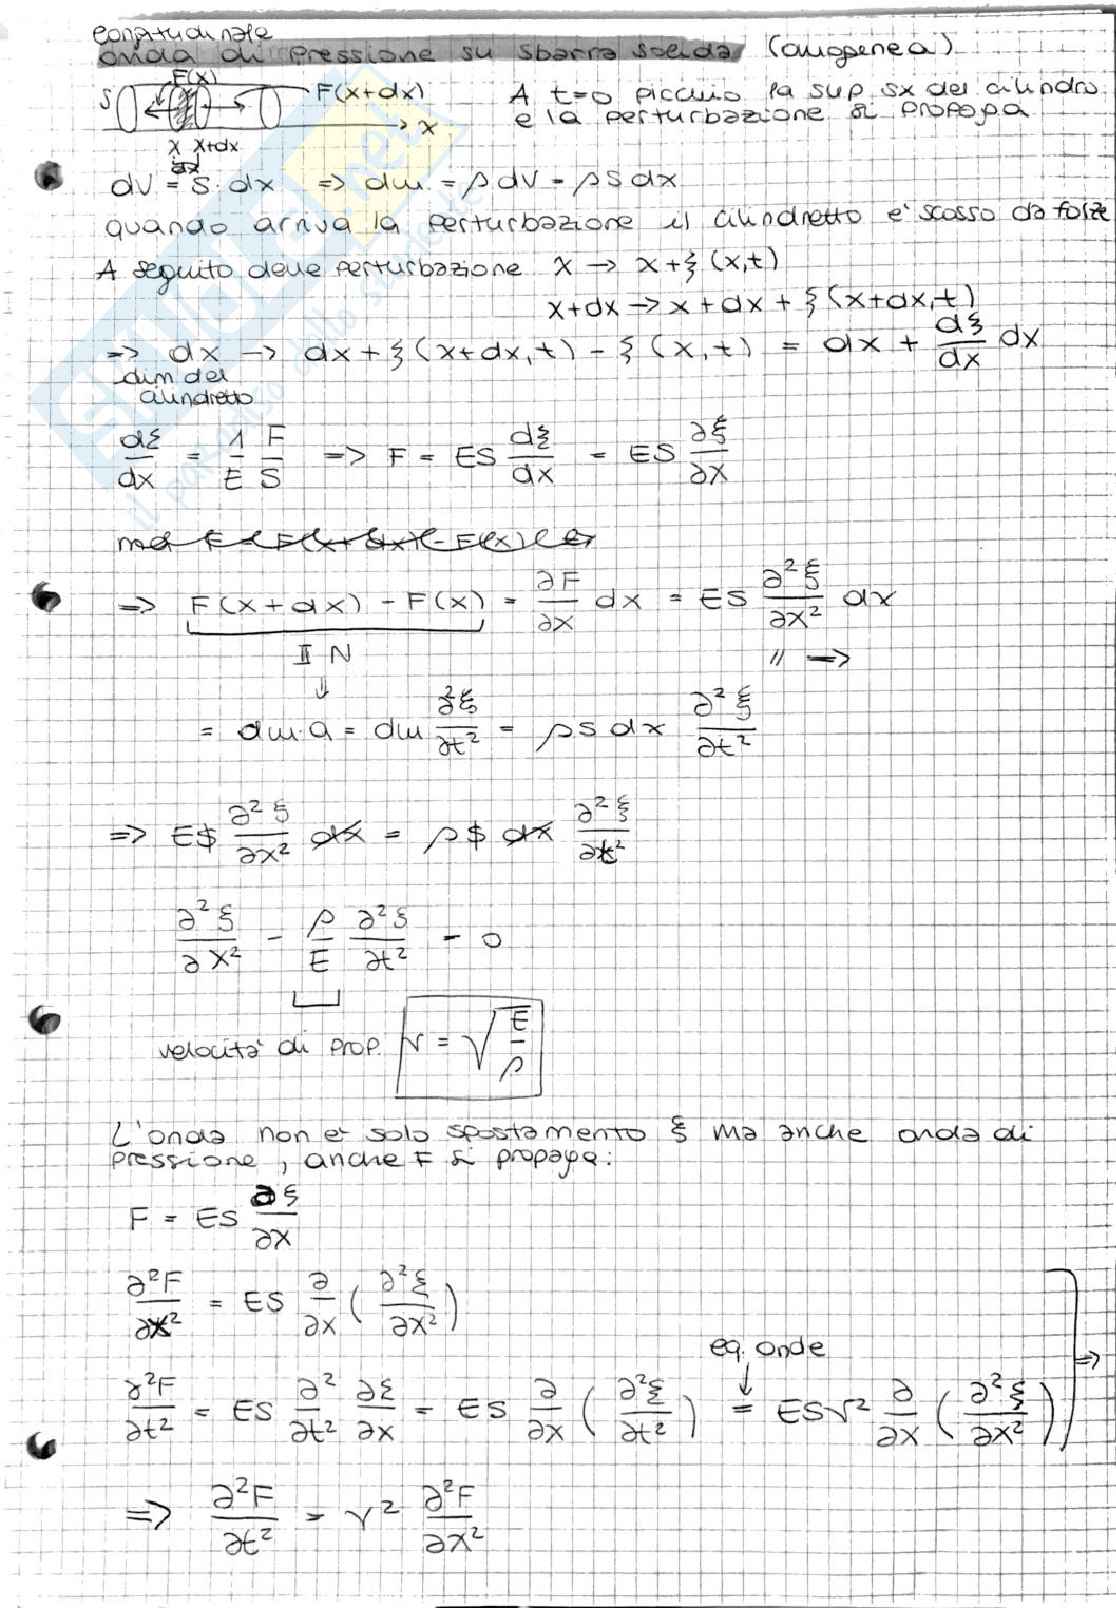 longitudinale
onda di pressione su sbarra solida (omogenea)
S F(x) F(x+dx) x
x x+dx
dx
A t=0 picchio la sup sx del cilindro
e la perturbazione si propaga
dV = S · dx => dm = ρ dV = ρ S dx
quando arriva la perturbazione il cilindretto e' scosso da forze
A seguito delle perturbazione x → x + ξ (x,t)
x+dx → x + dx + ξ (x+dx,t)
=> dx → dx + ξ (x+dx, t) - ξ (x,t) = dx + dξ/dx dx
dim del
cilindretto
dξ/dx = 1/E F/S => F = ES dξ/dx = ES ∂ξ/∂x
=> F(x+dx) - F(x) = ∂F/∂x dx = ES ∂²ξ/∂x² dx
II N
⇓
// →
= dm·a = dm ∂²ξ/∂t² = ρ S dx ∂²ξ/∂t²
=> ES ∂²ξ/∂x² dx = ρ S dx ∂²ξ/∂t²
∂²ξ/∂x² - ρ/E ∂²ξ/∂t² = 0
velocita' di prop. v = √E/ρ
L'onda non e' solo spostamento ξ ma anche onda di
pressione, anche F si propaga:
F = ES ∂ξ/∂x
∂²F/∂x² = ES ∂/∂x (∂²ξ/∂x²)
eq. onde
∂²F/∂t² = ES ∂²/∂t² ∂ξ/∂x = ES ∂/∂x (∂²ξ/∂t²) = ESv² ∂/∂x (∂²ξ/∂x²) =>
=> ∂²F/∂t² = v² ∂²F/∂x²